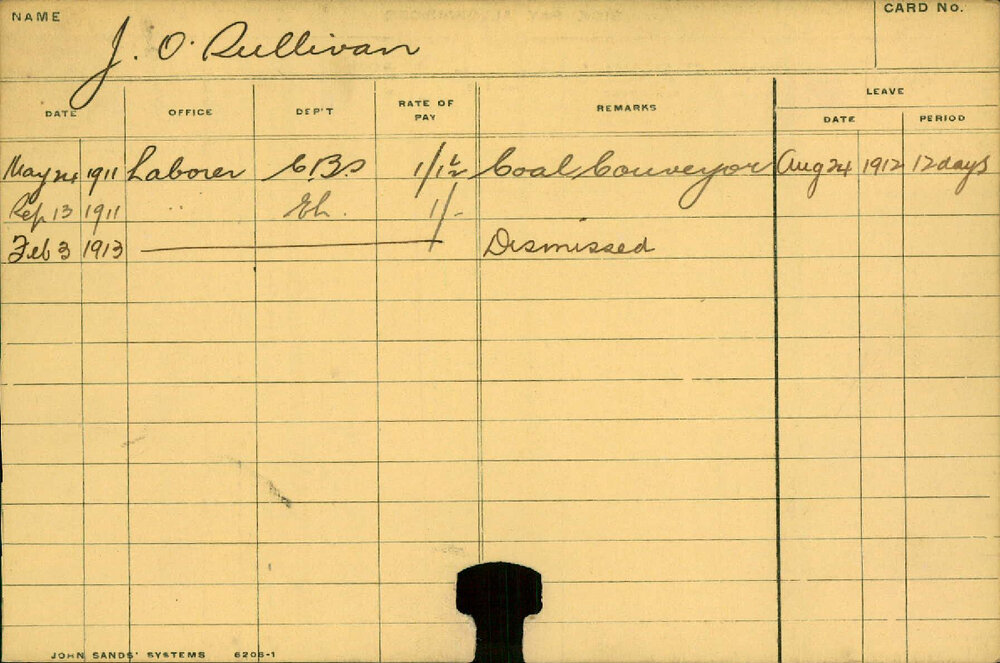 NAME
J. O'Sullivan
CARD No.
DATE OFFICE DEP'T RATE OF PAY REMARKS LEAVE
DATE PERIOD
May 24 1911 Laborer E.B.S 1/1½ Coal Conveyor Aug 24 1912 12 days
Sep 13 1911 " 1/-
Feb 3 1913 Dismissed
JOHN SANDS' SYSTEMS 6206-1